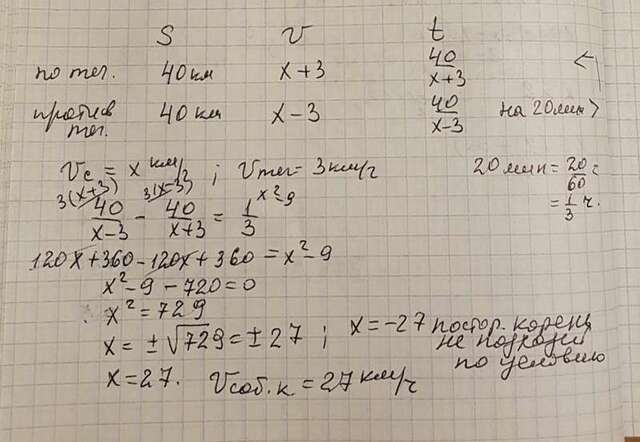 S V t
по теч. 40 км x+3 40/x+3 <
против теч. 40 км x-3 40/x-3 на 20 мин >
Vc = x км/ч ; Vтеч = 3 км/ч 20 мин = 20/60 =
3(x+3) 3(x-3) x²-9
40/x-3 - 40/x+3 = 1/3 = 1/3 ч.
120x+360-120x+360 = x²-9
x²-9-720=0
x²=729
x= ±√729=±27 ; x=-27 постор. корень
не подходит
по условию
x=27. Vсоб.к = 27 км/ч